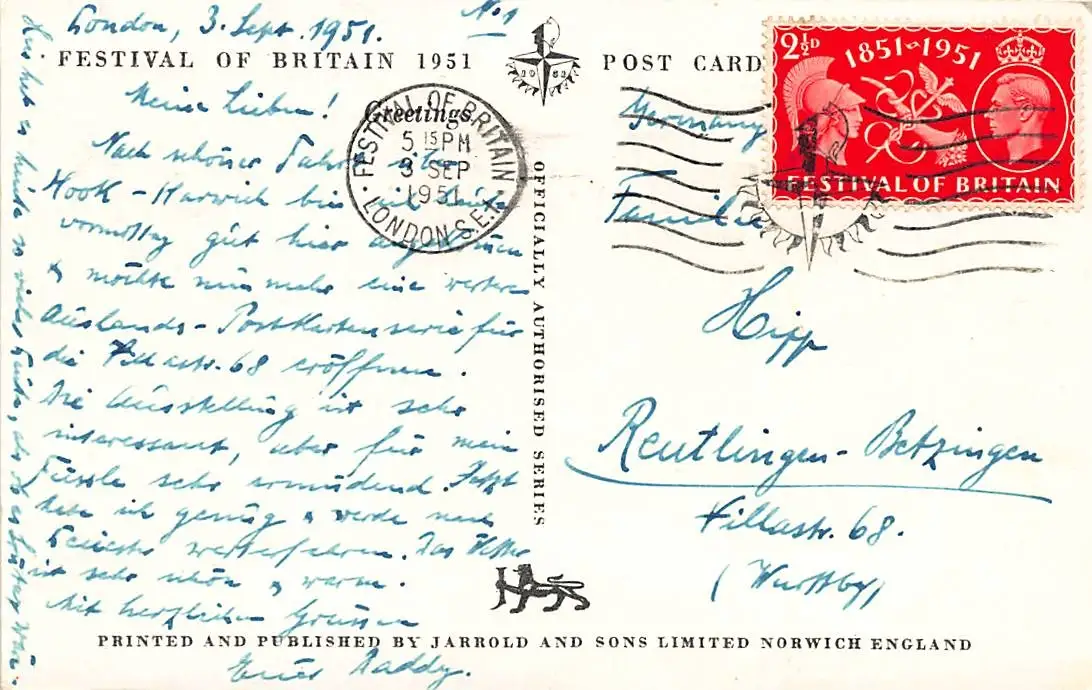 London, 3. Sept. 1951.
No 1
FESTIVAL OF BRITAIN 1951
POST CARD
Greetings
Meine Lieben!
Nach schöner Fahrt über
Hook-Harwich bin ich
vormittag gut hier angekommen
& möchte nunmehr eine weitere
Auslands-Postkartenserie für
die Villastr. 68 eröffnen.
Die Ausstellung ist sehr
interessant, aber für mein
Füssle sehr ermüdend. Jetzt
habe ich genug & werde nach
weiterfahren. Das Wetter
ist sehr schön & warm.
Mit herzlichen Grüssen
Euer Daddy.
Hier hat es heute so viele Leute, als ob es wär.
OFFICIALLY AUTHORISED SERIES
FESTIVAL OF BRITAIN
5 15 PM
3 SEP
1951
LONDON S.E.1.
2½D
1851-1951
FESTIVAL OF BRITAIN
Germany
Familie
Hipp
Reutlingen-Betzingen
Villastr. 68.
(Württbg)
PRINTED AND PUBLISHED BY JARROLD AND SONS LIMITED NORWICH ENGLAND